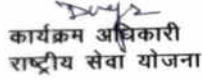 कार्यक्रम अधिकारी
राष्ट्रीय सेवा योजना